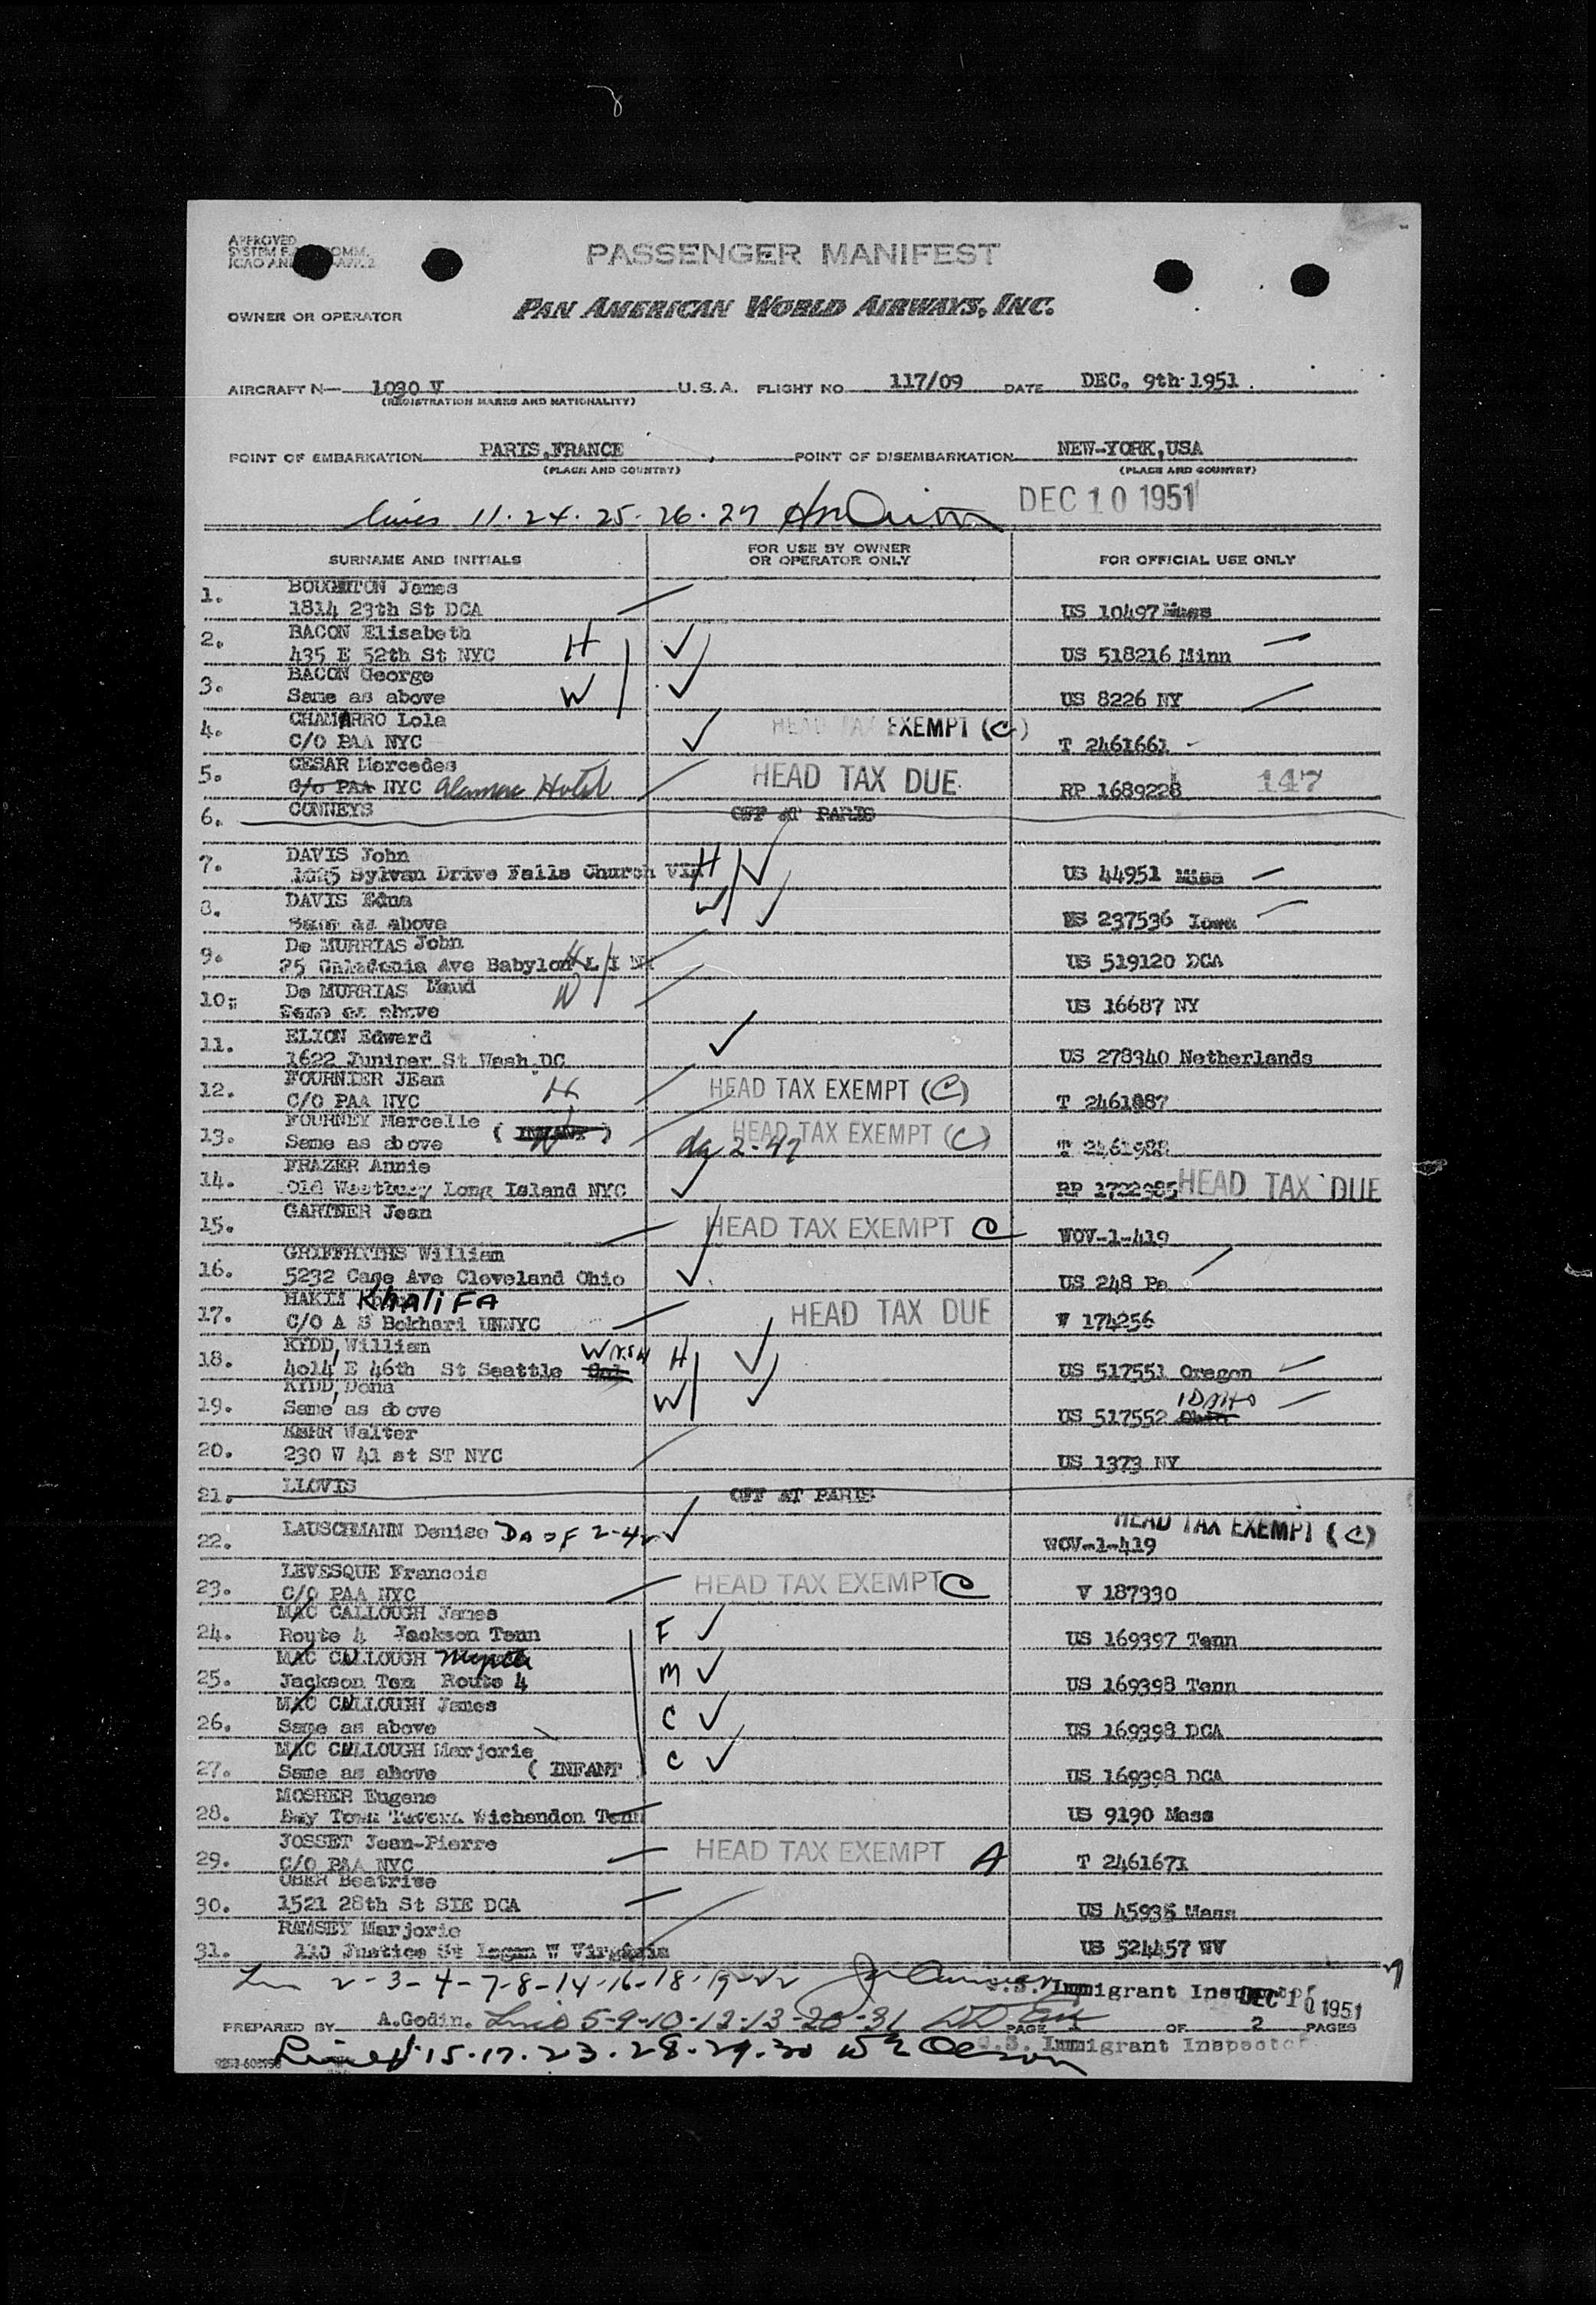 APPROVED
PASSENGER MANIFEST
PAN AMERICAN WORLD AIRWAYS, INC.
OWNER OR OPERATOR
AIRCRAFT N— 1030 V U.S.A. FLIGHT NO 117/09 DATE DEC. 9th 1951
(REGISTRATION MARKS AND NATIONALITY)
POINT OF EMBARKATION PARIS,FRANCE POINT OF DISEMBARKATION NEW-YORK,USA
(PLACE AND COUNTRY) (PLACE AND COUNTRY)
lines 11-24-25-26-27 DEC 10 1951
SURNAME AND INITIALS FOR USE BY OWNER OR OPERATOR ONLY FOR OFFICIAL USE ONLY
1. BOUGHTON James
1814 23th St DCA US 10497 Mass
2. BACON Elisabeth
435 E 52th St NYC H US 518216 Minn
3. BACON George
Same as above W US 8226 NY
4. CHAMARRO Lola HEAD TAX EXEMPT (C)
C/O PAA NYC T 2461661
5. CESAR Mercedes HEAD TAX DUE
C/o PAA NYC Hotel RP 1689228 147
6. CONNEYS OFF AT PARIS
7. DAVIS John H
Sylvan Drive Falls Church US 44951 Miss
8. DAVIS Edna W
Same as above US 237536 Iowa
9. De MURRIAS John
25 Ave Babylon L I US 519120 DCA
10. De MURRIAS Maud W
Same as above US 16687 NY
11. ELION Edward
1622 Juniper St Wash.DC US 278340 Netherlands
12. FOURNIER JEan H HEAD TAX EXEMPT (C)
C/O PAA NYC T 2461987
13. FOURNEY Marcelle ( INFANT ) HEAD TAX EXEMPT (C)
Same as above W 2-47 T 2461988
14. FRAZER Annie
Old Westbury Long Island NYC RP 1722985 HEAD TAX DUE
15. GARTNER Jean HEAD TAX EXEMPT C
WOV-1-419
16. GRIFFHITHS William
5232 Case Ave Cleveland Ohio US 248 Pa
17. HAKIM KhaliFA HEAD TAX DUE
C/O A S Bokhari UNNYC V 174256
18. KYDD, William WASH H
4014 E 46th St Seattle US 517551 Oregon
19. KYDD, Dona W IDAHO
Same as above US 517552
20. KERR Walter
230 W 41 st ST NYC US 1373 NY
21. LLOVIS OFF AT PARIS
22. LAUSCHMANN Denise HEAD TAX EXEMPT (C)
WOV-1-419
23. LEVESQUE Francois HEAD TAX EXEMPT C
C/O PAA NYC V 187330
24. MAC CALLOUGH James
Route 4 Jackson Tenn F US 169397 Tenn
25. MAC CULLOUGH
Jackson Ten Route 4 M US 169398 Tenn
26. MAC CULLOUGH James
Same as above C US 169398 DCA
27. MAC CULLOUGH Marjorie
Same as above ( INFANT C US 169398 DCA
28. MOSHER Eugene
Town Wichendon Tenn US 9190 Mass
29. JOSSET Jean-Pierre HEAD TAX EXEMPT A
C/O PAA NYC T 2461671
30. OBER Beatrise
1521 28th St SIE DCA US 45938 Mass
31. RAMSEY Marjorie
110 Justice St Logan W Virginia US 524457 WV
2-3-4-7-8-14-16-18-19-22 U.S. Immigrant Inspector
DEC 10 1951
PREPARED BY A.Godin. Lines 5-9-10-12-13-20-31 PAGE 1 OF 2 PAGES
Lines 1-15-17-23-28-29-30 Olson U.S. Immigrant Inspector